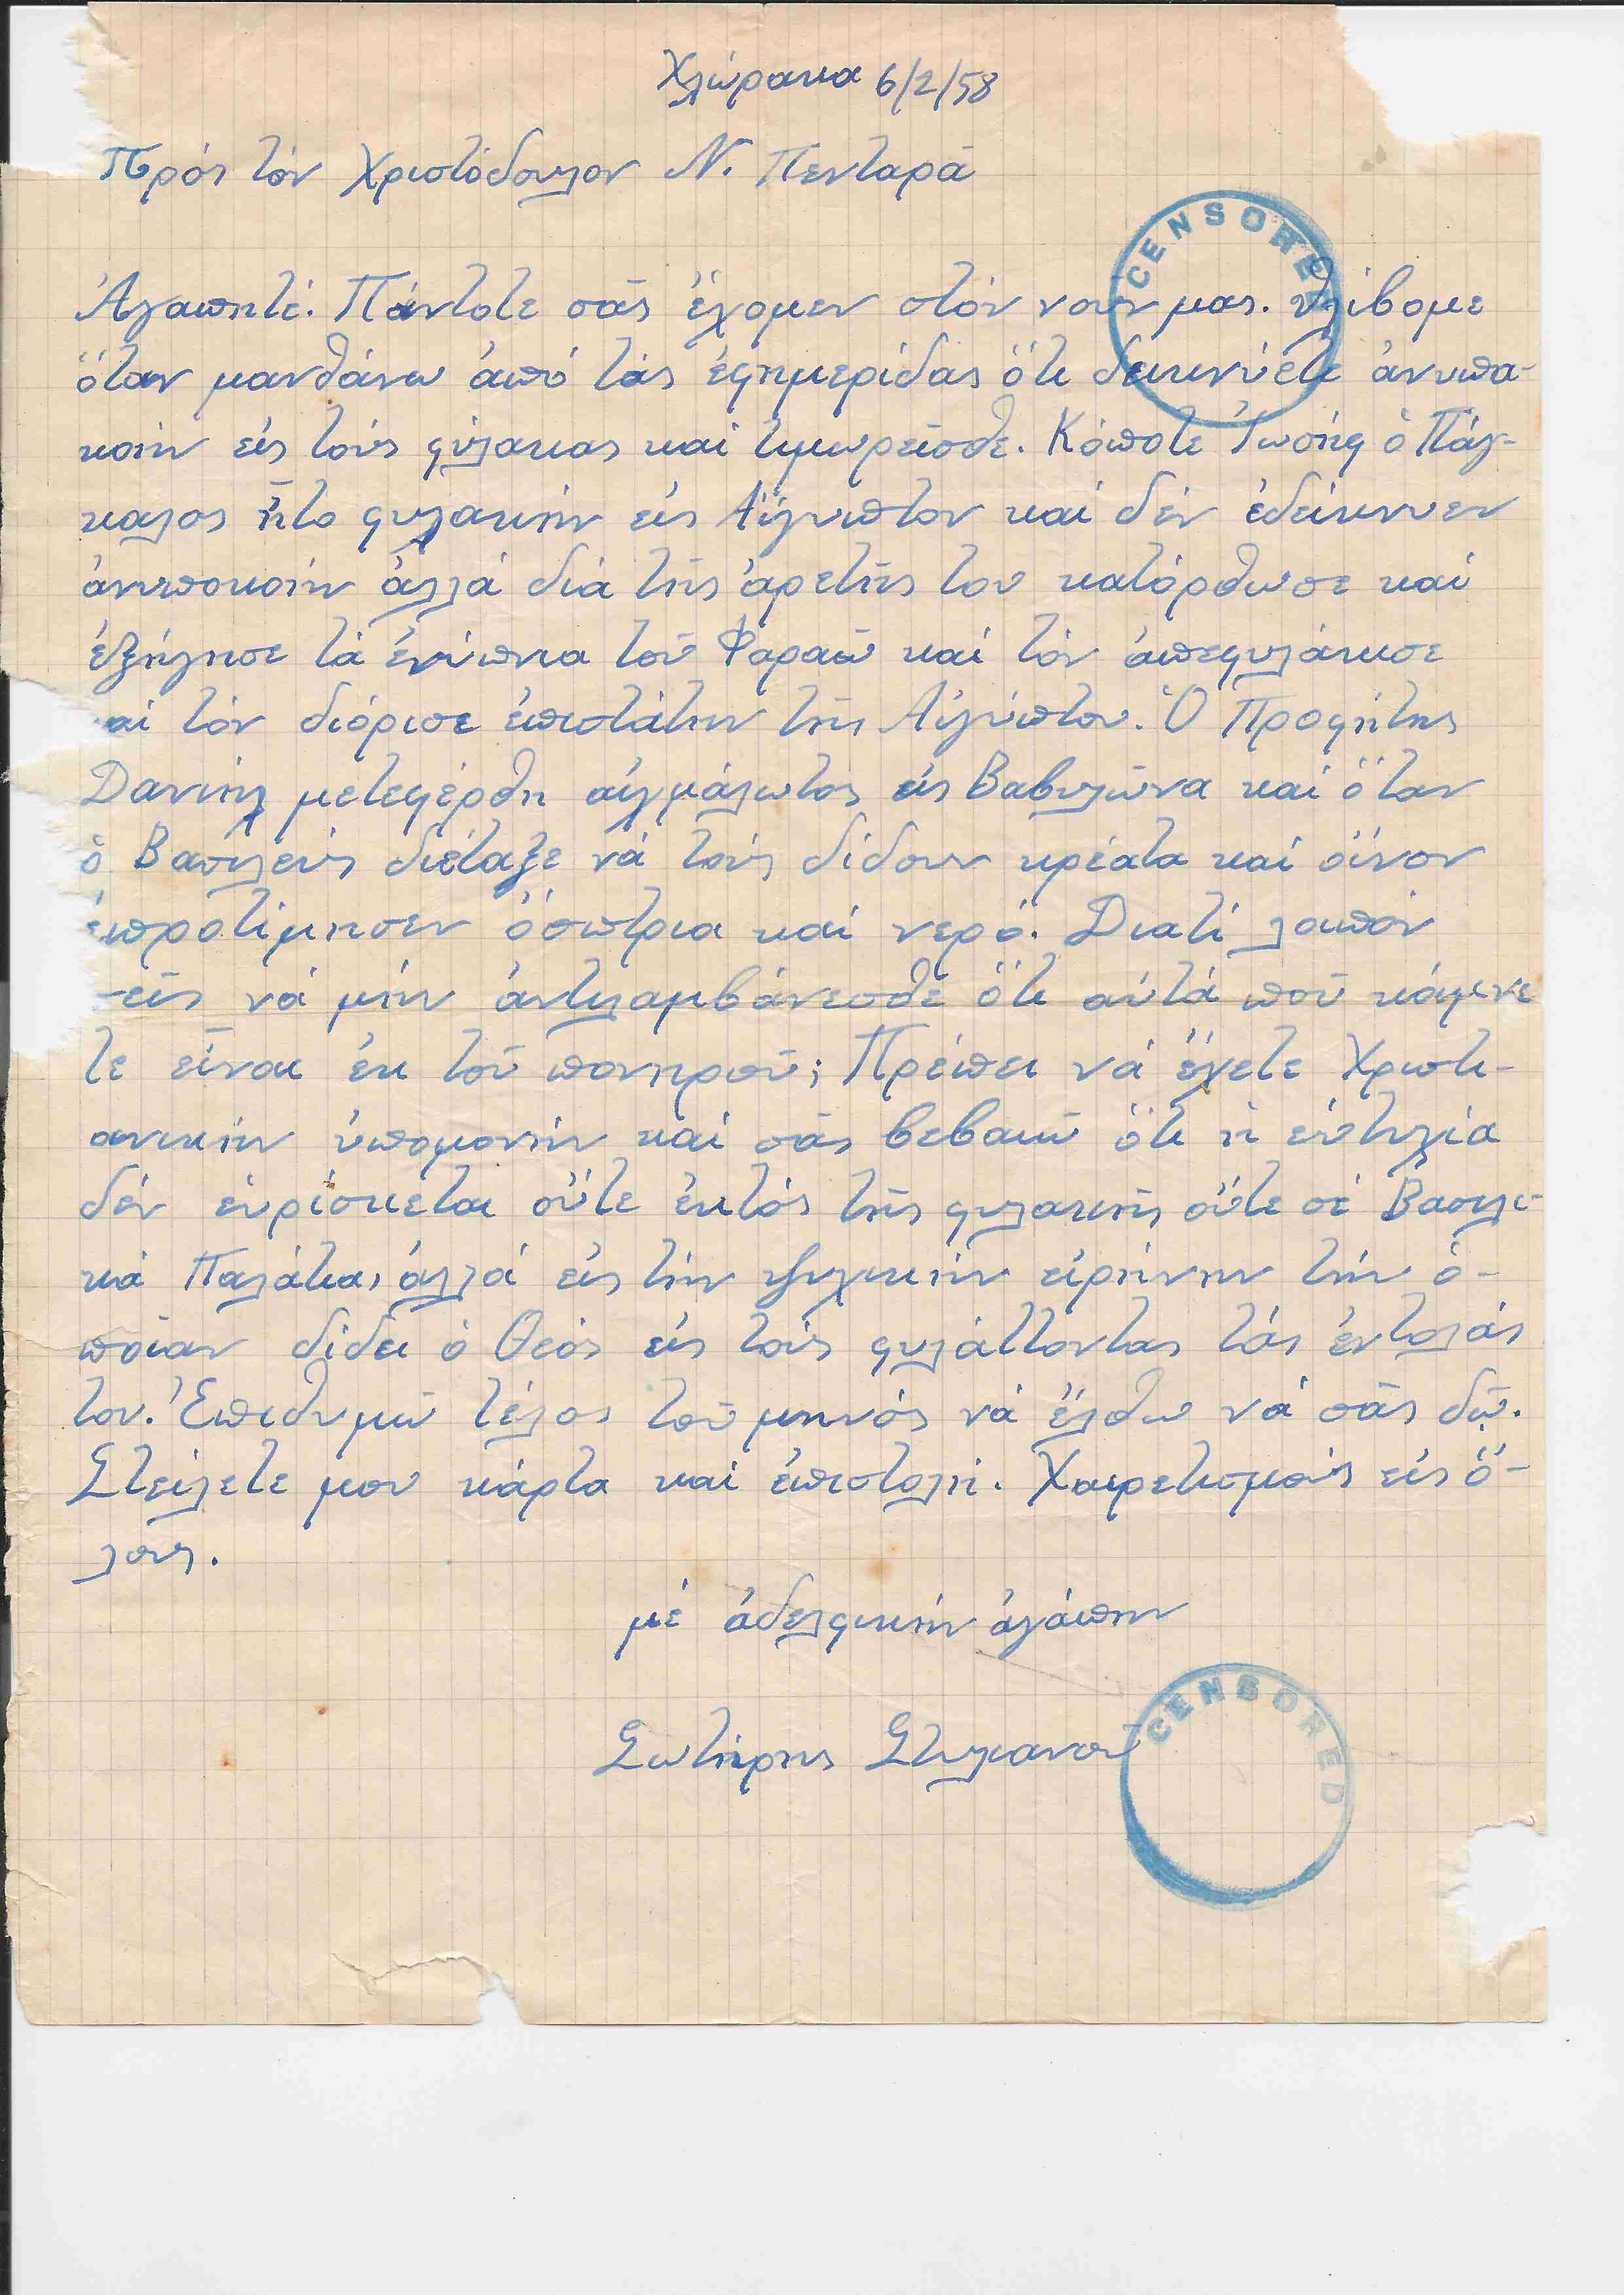 Χλώρακα 6/2/58
Πρός τόν Χριστόδουλον Ν. Πενταρά
CENSORED
Ἀγαπητέ. Πάντοτε σᾶς ἔχομεν στόν νοῦν μας. Θλίβομε
ὅταν μανθάνω ἀπό τάς ἐφημερίδας ὅτι δεικνύετε ἀνυπα-
κοήν εἰς τούς φύλακας καί τιμωρεῖσθε. Κάποτε Ἰωσήφ ὁ Πάγ-
καλος ἦτο φυλακήν εἰς Αἴγυπτον καί δέν ἐδείκνυεν
ἀνυπακοήν ἀλλά διά τῆς ἀρετῆς του κατόρθωσε καί
ἐξήγησε τά ἐνύπνια τοῦ Φαραώ καί τόν ἀπεφυλάκισε
αί τόν διόρισε ἐπιστάτην τῆς Αἰγύπτου. Ὁ Προφήτης
Δανιήλ μετεφέρθη αἰχμάλωτος εἰς Βαβυλῶνα καί ὅταν
ὁ Βασιλεύς διέταξε νά τούς δίδουν κρέατα καί οἶνον
ἐπροτίμησεν ὄσπρια καί νερό. Διατί λοιπόν
εῖς νά μήν ἀντιλαμβάνεσθε ὅτι αὐτά πού κάμνε
τε εἶναι ἐκ τοῦ πονηροῦ; Πρέπει νά ἔχετε Χριστι-
ανικήν ὑπομονήν καί σᾶς βεβαιῶ ὅτι ἡ εὐτυχία
δέν εὑρίσκεται οὔτε ἐκτός τῆς φυλακῆς οὔτε σέ Βασιλι-
κά Παλάτια, ἀλλά εἰς τήν ψυχικήν εἰρήνην τήν ὁ-
ποίαν δίδει ὁ Θεός εἰς τούς φυλάττοντας τάς ἐντολάς
του. Ἐπιθυμῶ τέλος τοῦ μηνός νά ἔλθω νά σᾶς δῶ.
Στείλετε μου κάρτα καί ἐπιστολή. Χαιρετισμούς εἰς ὅ-
λους.
μέ ἀδελφικήν ἀγάπην
Σωτήρης Στυλιανοῦ
CENSORED